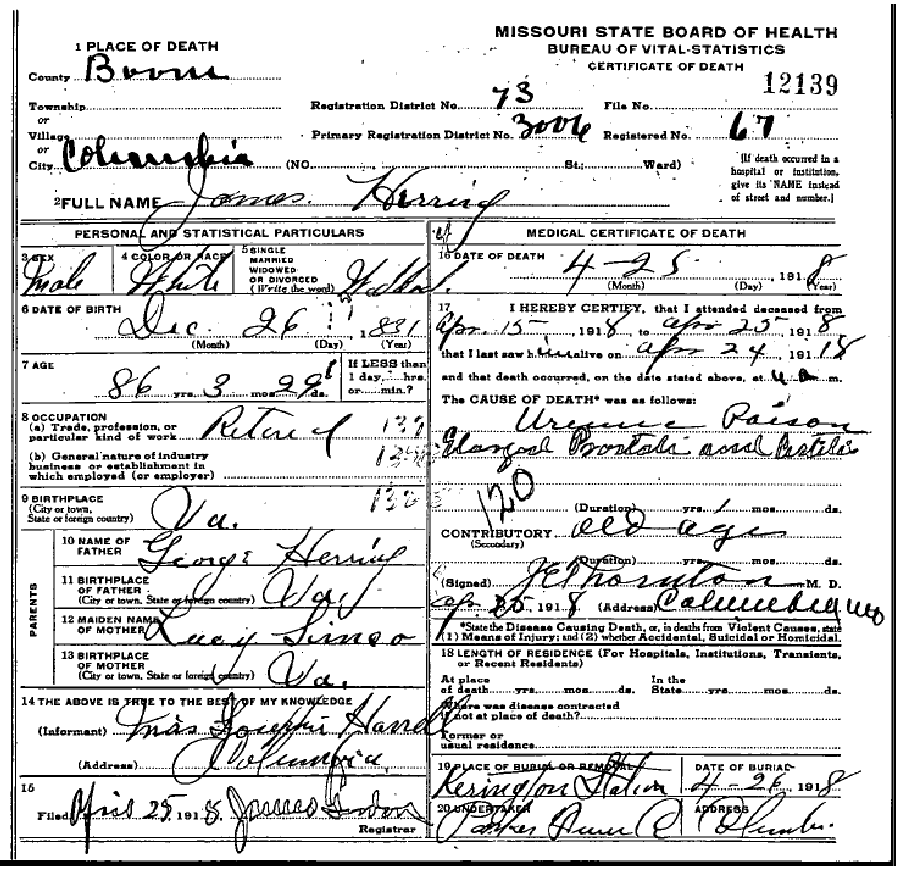 MISSOURI STATE BOARD OF HEALTH
BUREAU OF VITAL STATISTICS
CERTIFICATE OF DEATH
12139
1 PLACE OF DEATH
County Boone
Township
or
Village
or
City Columbia (NO. St.; Ward)
Registration District No. 73 File No.
Primary Registration District No. 3006 Registered No. 67
[If death occurred in a
hospital or institution,
give its NAME instead
of street and number.]
2 FULL NAME James Herring
PERSONAL AND STATISTICAL PARTICULARS
3 SEX
Male
4 COLOR OR RACE
White
5 SINGLE
MARRIED
WIDOWED
OR DIVORCED
(Write the word)
6 DATE OF BIRTH
Dec. 26, 1831
(Month) (Day) (Year)
7 AGE
86 yrs. 3 mos. 29 ds.
If LESS than
1 day, hrs.
or min.?
8 OCCUPATION
(a) Trade, profession, or
particular kind of work Retired
(b) General nature of industry
business or establishment in
which employed (or employer)
9 BIRTHPLACE
(City or town,
State or foreign country) Va.
PARENTS
10 NAME OF
FATHER George Herring
11 BIRTHPLACE
OF FATHER
(City or town, State or foreign country) Va.
12 MAIDEN NAME
OF MOTHER Lucy
13 BIRTHPLACE
OF MOTHER
(City or town, State or foreign country) Va.
14 THE ABOVE IS TRUE TO THE BEST OF MY KNOWLEDGE
(Informant) Josephine Harrell
(Address) Columbia
15
Filed April 25 1918 James Gordon
Registrar
MEDICAL CERTIFICATE OF DEATH
16 DATE OF DEATH
4-25, 1918
(Month) (Day) (Year)
17 I HEREBY CERTIFY, that I attended deceased from
Apr. 15, 1918 to Apr 25, 1918
that I last saw him alive on Apr 24 1918
and that death occurred, on the date stated above, at 4 a m.
The CAUSE OF DEATH* was as follows:
Uremic Poison
and
120
(Duration) yrs. mos. ds.
CONTRIBUTORY old age
(Secondary)
(Duration) yrs. mos. ds.
(Signed) J E Thornton M. D.
Apr 25, 1918 (Address) Columbia Mo
*State the Disease Causing Death, or, in deaths from Violent Causes, state
(1) Means of Injury; and (2) whether Accidental, Suicidal or Homicidal.
18 LENGTH OF RESIDENCE (For Hospitals, Institutions, Transients,
or Recent Residents)
At place In the
of death yrs. mos. ds. State yrs. mos. ds.
Where was disease contracted
if not at place of death?
Former or
usual residence
19 PLACE OF BURIAL OR REMOVAL
Station
DATE OF BURIAL
4-26, 1918
20 UNDERTAKER
Parker
ADDRESS